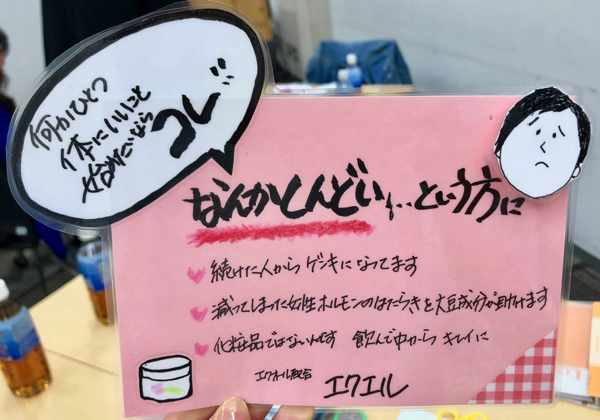 何かひとつ
体にいいこと
始めたいなら
コレ
なんかしんどい…という方に
続けた人からゲンキになってます
減ってしまった女性ホルモンのはたらきを大豆成分が助けます
化粧品ではないんです 飲んで中からキレイに
エクオール配合
エクエル